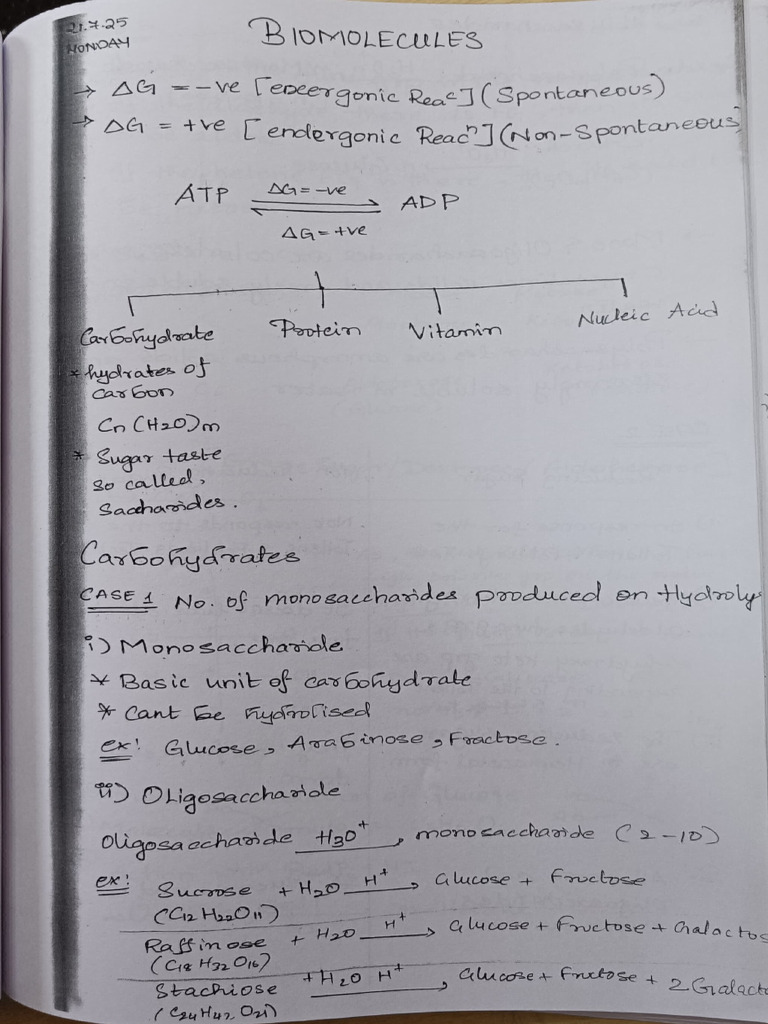 21.7.25
MONDAY
BIOMOLECULES
→ ΔG = -ve [exergonic Reacⁿ] (Spontaneous)
→ ΔG = +ve [endergonic Reacⁿ] (Non-Spontaneous)
ATP ⇌ ADP
ΔG = -ve
ΔG = +ve
Carbohydrate Protein Vitamin Nucleic Acid
* hydrates of
carbon
Cn (H2O)m
* Sugar taste
so called,
Saccharides.
Carbohydrates
CASE 1 No. of monosaccharides produced on Hydroly
i) Monosaccharide
* Basic unit of carbohydrate
* Cant be hydrolised
ex: Glucose, Arabinose, Fractose.
ii) Oligosaccharide
Oligosaccharide H3O⁺ → monosaccharide (2-10)
ex: Sucrose + H2O H⁺ → Glucose + Fructose
(C12 H22O11)
Raffinose + H2O H⁺ → Glucose + Fructose + Galactos
(C18 H32 O16)
Stachiose + H2O H⁺ → Glucose + Fructose + 2 Galacto
(C24H42 O21)